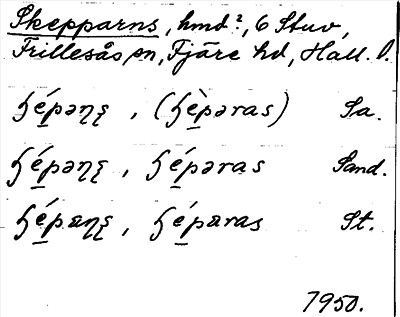 Skepparns, hmd?, 6 Stuv,
Frillesås sn, Fjäre hd, Hall. l.
ɧépəηʂ, (ɧèpəras) Sa.
ɧépəηʂ, ɧépəras Sand.
ɧépɑηʂ, ɧépɑras St.
1950.